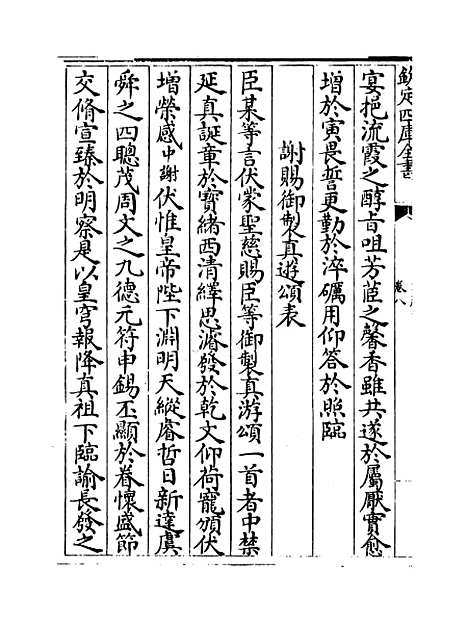 欽定四庫全書
卷八
宴挹流霞之醇旨咀芳茝之馨香雖共遂於屬厭實愈
增於寅畏誓更勤於淬礪用仰答於照臨
謝賜御製真遊頌表
臣某等言伏蒙聖慈賜臣等御製真游頌一首者中禁
延真誕章於寶緒西清繹思濬發於乾文仰荷寵頒伏
增榮感中謝伏惟皇帝陛下淵明天縱睿哲日新達虞
舜之四聰茂周文之九德元符申錫丕顯於眷懷盛節
交脩宣臻於明察是以皇穹報降真祖下臨諭長發之